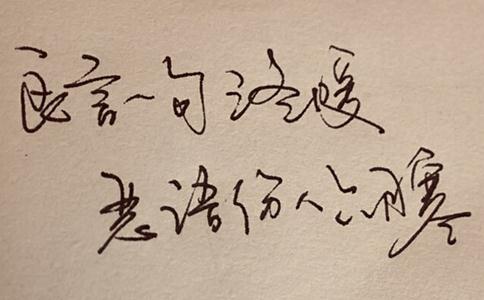 良言一句三冬暖
恶语伤人六月寒